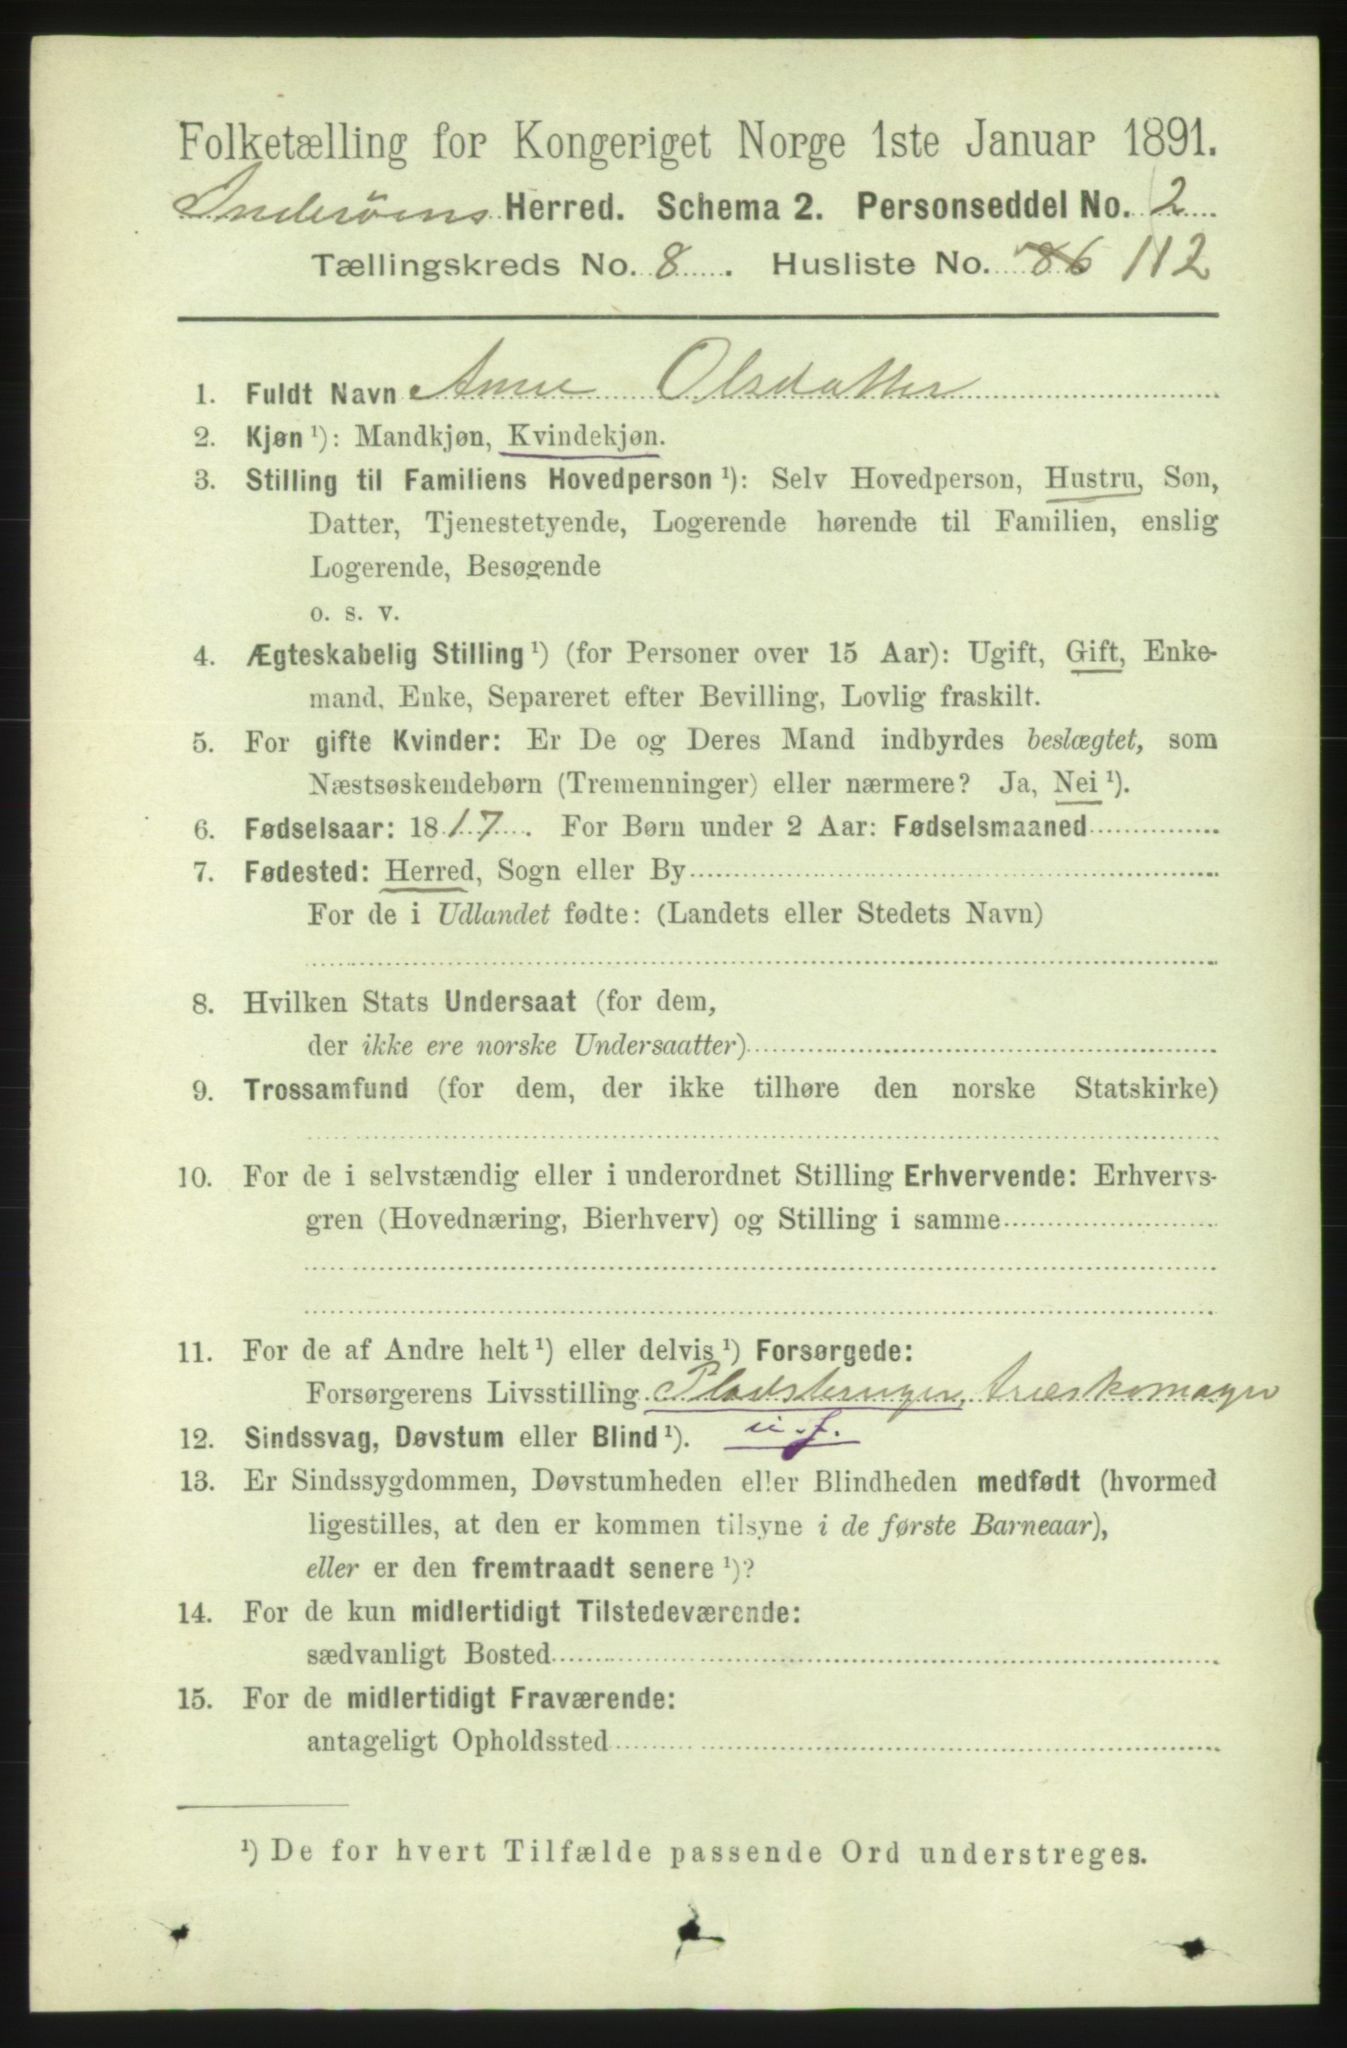 Folketælling for Kongeriget Norge 1ste Januar 1891.
Inderøens Herred. Schema 2. Personseddel No. 2
Tællingskreds No. 8. Husliste No. 86 112
1. Fuldt Navn Anne Olsdatter
2. Kjøn ¹): Mandkjøn, Kvindekjøn.
3. Stilling til Familiens Hovedperson ¹): Selv Hovedperson, Hustru, Søn,
Datter, Tjenestetyende, Logerende hørende til Familien, enslig
Logerende, Besøgende
o. s. v.
4. Ægteskabelig Stilling ¹) (for Personer over 15 Aar): Ugift, Gift, Enke-
mand, Enke, Separeret efter Bevilling, Lovlig fraskilt.
5. For gifte Kvinder: Er De og Deres Mand indbyrdes beslægtet, som
Næstsøskendebørn (Tremenninger) eller nærmere? Ja, Nei ¹).
6. Fødselsaar: 1817. For Børn under 2 Aar: Fødselsmaaned
7. Fødested: Herred, Sogn eller By
For de i Udlandet fødte: (Landets eller Stedets Navn)
8. Hvilken Stats Undersaat (for dem,
der ikke ere norske Undersaatter)
9. Trossamfund (for dem, der ikke tilhøre den norske Statskirke)
10. For de i selvstændig eller i underordnet Stilling Erhvervende: Erhvervs-
gren (Hovednæring, Bierhverv) og Stilling i samme
11. For de af Andre helt ¹) eller delvis ¹) Forsørgede:
Forsørgerens Livsstilling Pladsbruger, træskomager
12. Sindssvag, Døvstum eller Blind ¹). u. f.
13. Er Sindssygdommen, Døvstumheden eller Blindheden medfødt (hvormed
ligestilles, at den er kommen tilsyne i de første Barneaar),
eller er den fremtraadt senere ¹)?
14. For de kun midlertidigt Tilstedeværende:
sædvanligt Bosted
15. For de midlertidigt Fraværende:
antageligt Opholdssted
¹) De for hvert Tilfælde passende Ord understreges.